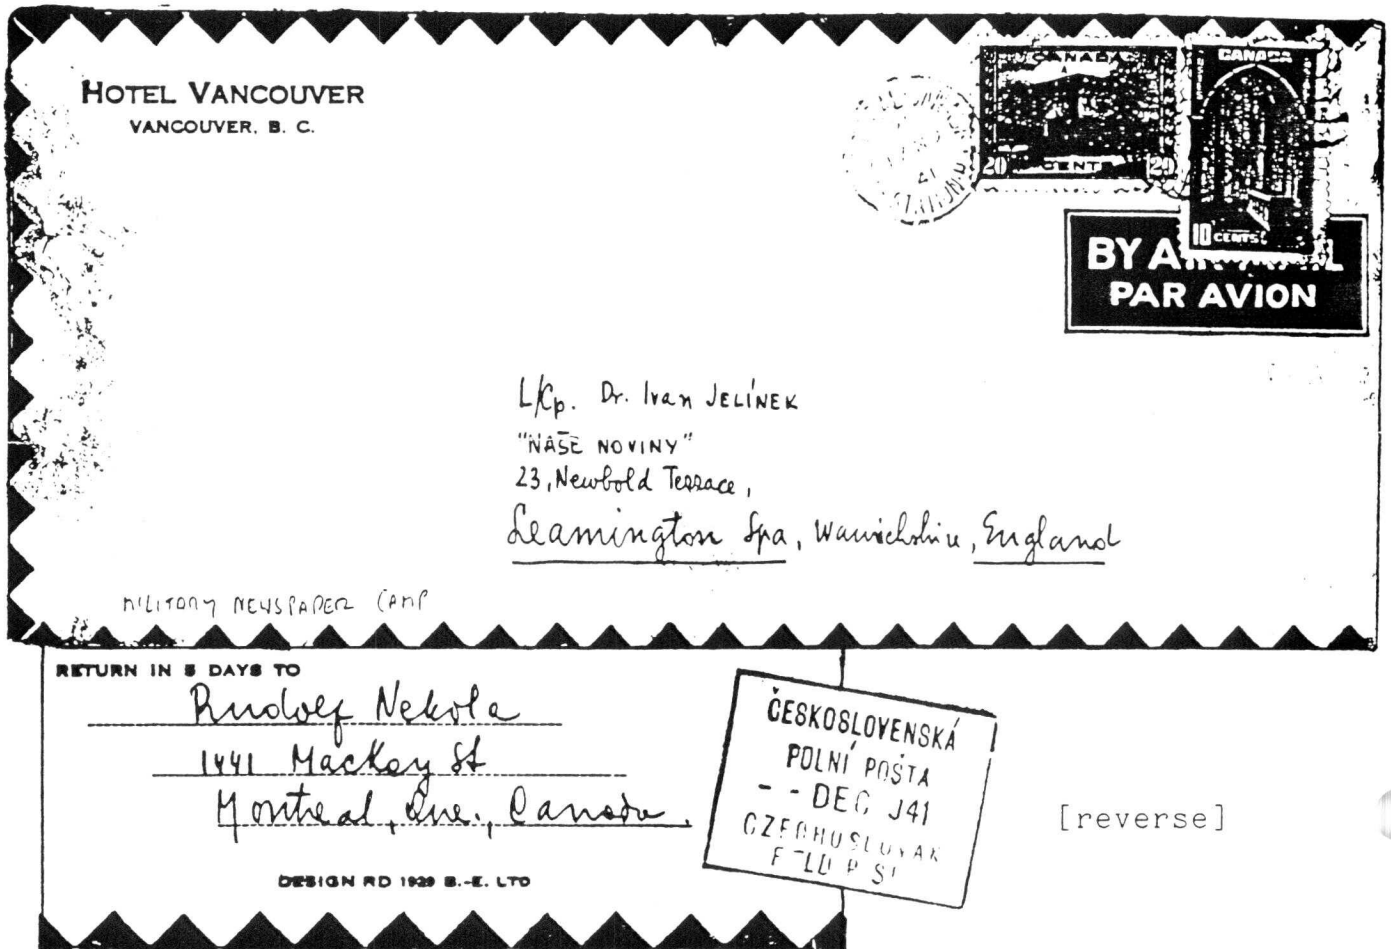 HOTEL VANCOUVER
VANCOUVER, B. C.
CANADA
20 CENTS 20
CANADA
10 CENTS
41
STATION
BY AIR MAIL
PAR AVION
L/Cp. Dr. Ivan JELÍNEK
"NAŠE NOVINY"
23, Newbold Terrace,
Leamington Spa, Warwickshire, England
MILITARY NEWSPAPER CAMP
RETURN IN 5 DAYS TO
Rudolf Nekola
1441 Mackay St
Montreal, Que., Canada.
DESIGN RD 1929 B.-E. LTD
ČESKOSLOVENSKÁ
POLNÍ POŠTA
- - DEC 941
CZECHOSLOVAK
FIELD POST
[reverse]